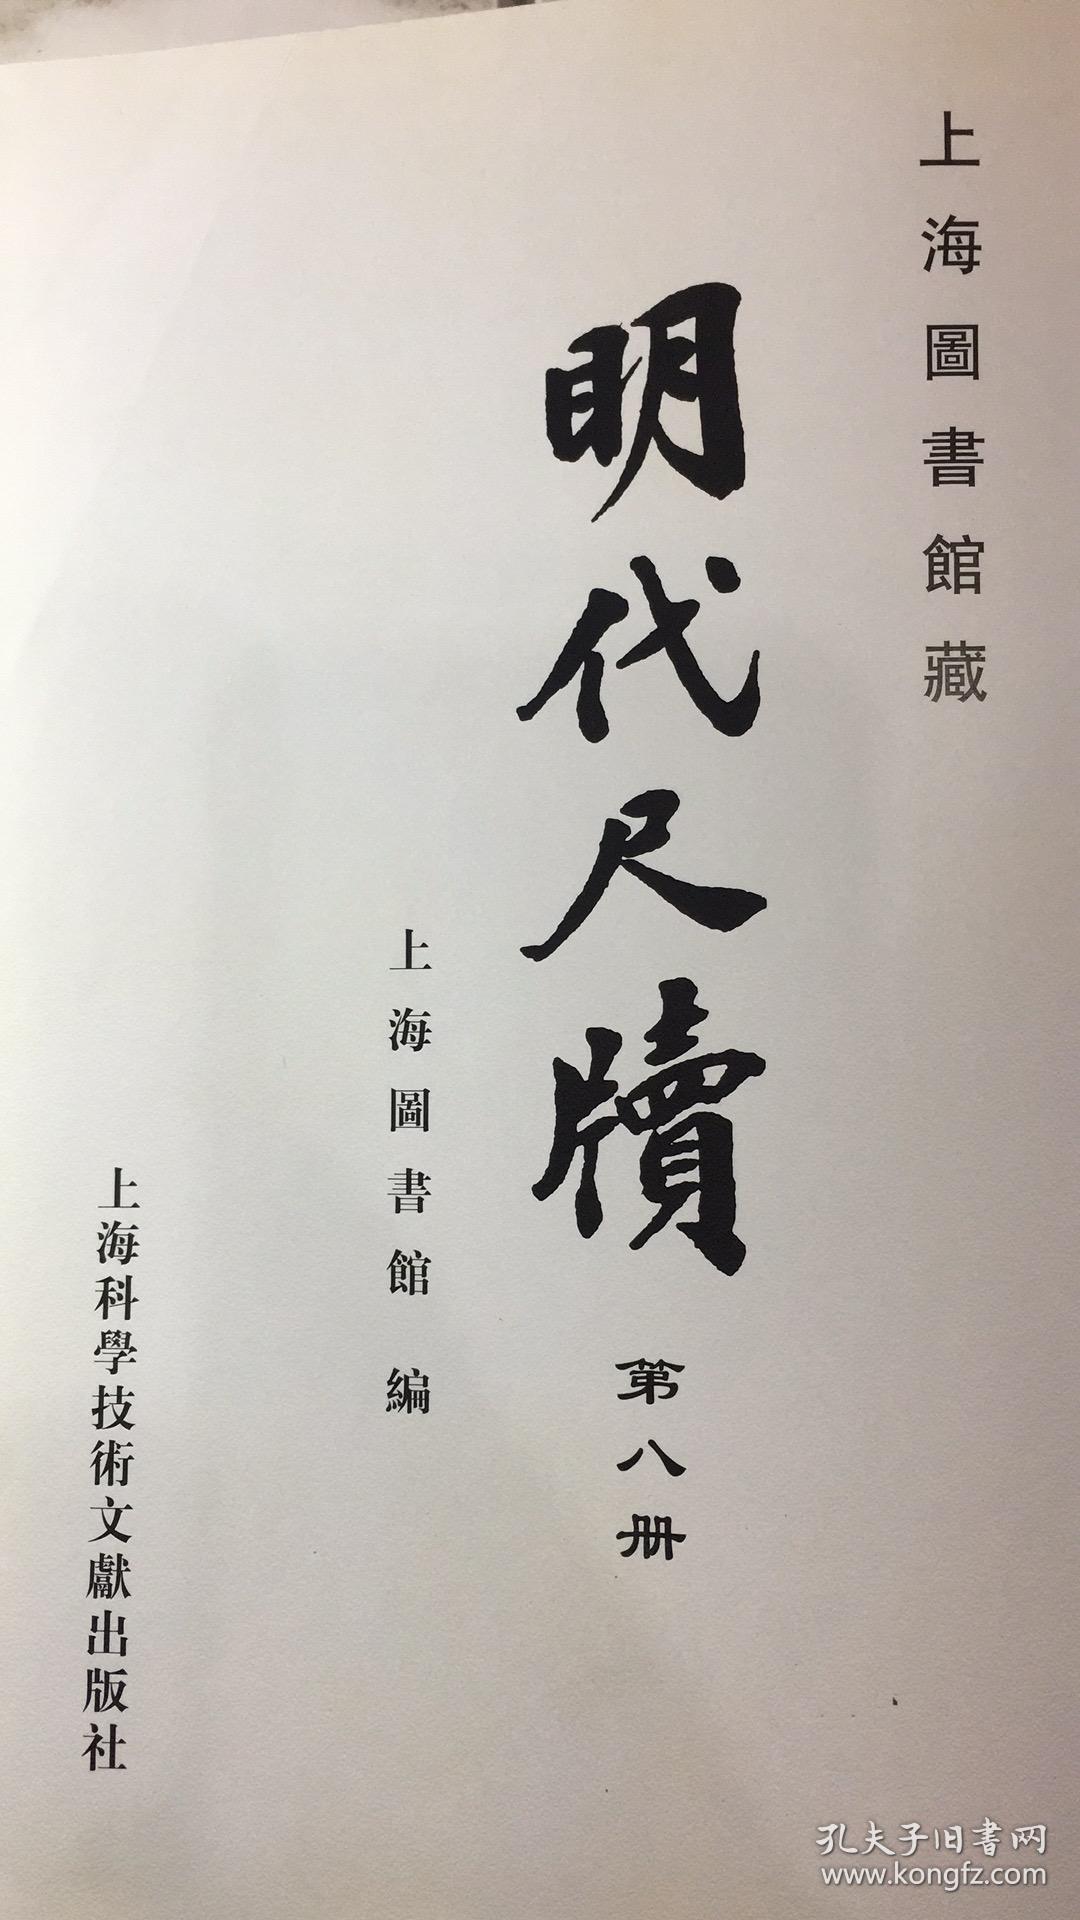 上海圖書館藏
明代尺牘
第八册
上海圖書館 編
上海科學技術文獻出版社
孔夫子旧書网
www.kongfz.com